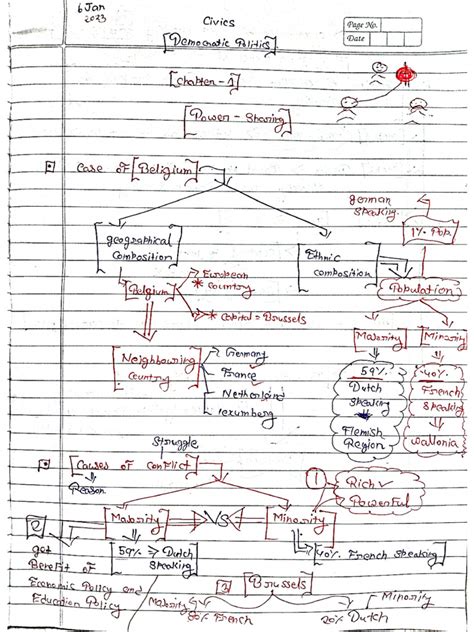 6 Jan
2023
Civics
Page No.
Date
[Democratic Politics]
[Chapter - 1]
[Power - Sharing]
Case of [Beligium]
german
speaking.
1% Pop.
[geographical
composition]
[Ethnic
composition
Population
[Belgium]
* European
country
* Capital = Brussels
[Majority] [Minority]
[Neighbouring
country]
Germany
France
Netherland
luxumberg
59%
Dutch
speaking
Flemish
Region
40%
French
speaking
wallonia
struggle
[Causes of conflict]
Reason
1
Rich
Powerful
[Majority] VS [Minority]
2
get
Benefit of
Economic Policy and
Education Policy
[59% Dutch
speaking]
[40% French speaking]
3 [Brussels]
Majority
80% French
Minority
20% Dutch